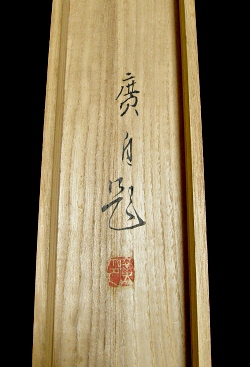 廣自題